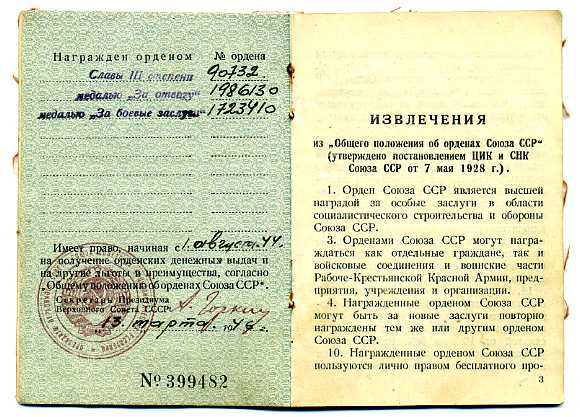 Награжден орденом № ордена
Славы III степени 90732.
медалью „За отвагу" 1986130
медалью „За боевые заслуги" 1723410
Имеет право, начиная с 1. август 44.
на получение орденских денежных выдач и
на другие льготы и преимущества, согласно
„Общему положению об орденах Союза ССР".
Секретарь Президиума
Верховного Совета СССР А. Горкин
13. марта 194 г.
№ 399482
ИЗВЛЕЧЕНИЯ
из „Общего положения об орденах Союза ССР"
(утверждено постановлением ЦИК и СНК
Союза ССР от 7 мая 1928 г.).
1. Орден Союза ССР является высшей
наградой за особые заслуги в области
социалистического строительства и обороны
Союза ССР.
3. Орденами Союза ССР могут награж-
даться как отдельные граждане, так
и войсковые соединения и воинские части
Рабоче-Крестьянской Красной Армии, пред-
приятия, учреждения и организации.
4. Награжденные орденом Союза ССР
могут быть за новые заслуги повторно
награждены тем же или другим орденом
Союза ССР.
10. Награжденные орденом Союза ССР
пользуются лично правом бесплатного про-
3